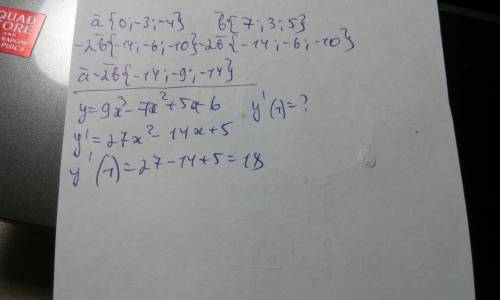 QUAD
STORE
AND
ā{0;-3;-4} b̄{7;3;5}
-2b̄{-14;-6;-10}-2b̄{-14;-6;-10}
ā-2b̄{-14;-9;-14}
y=9x³-7x²+5x-6 y'(-1)=?
y'=27x²-14x+5
y'(-1)=27-14+5=18